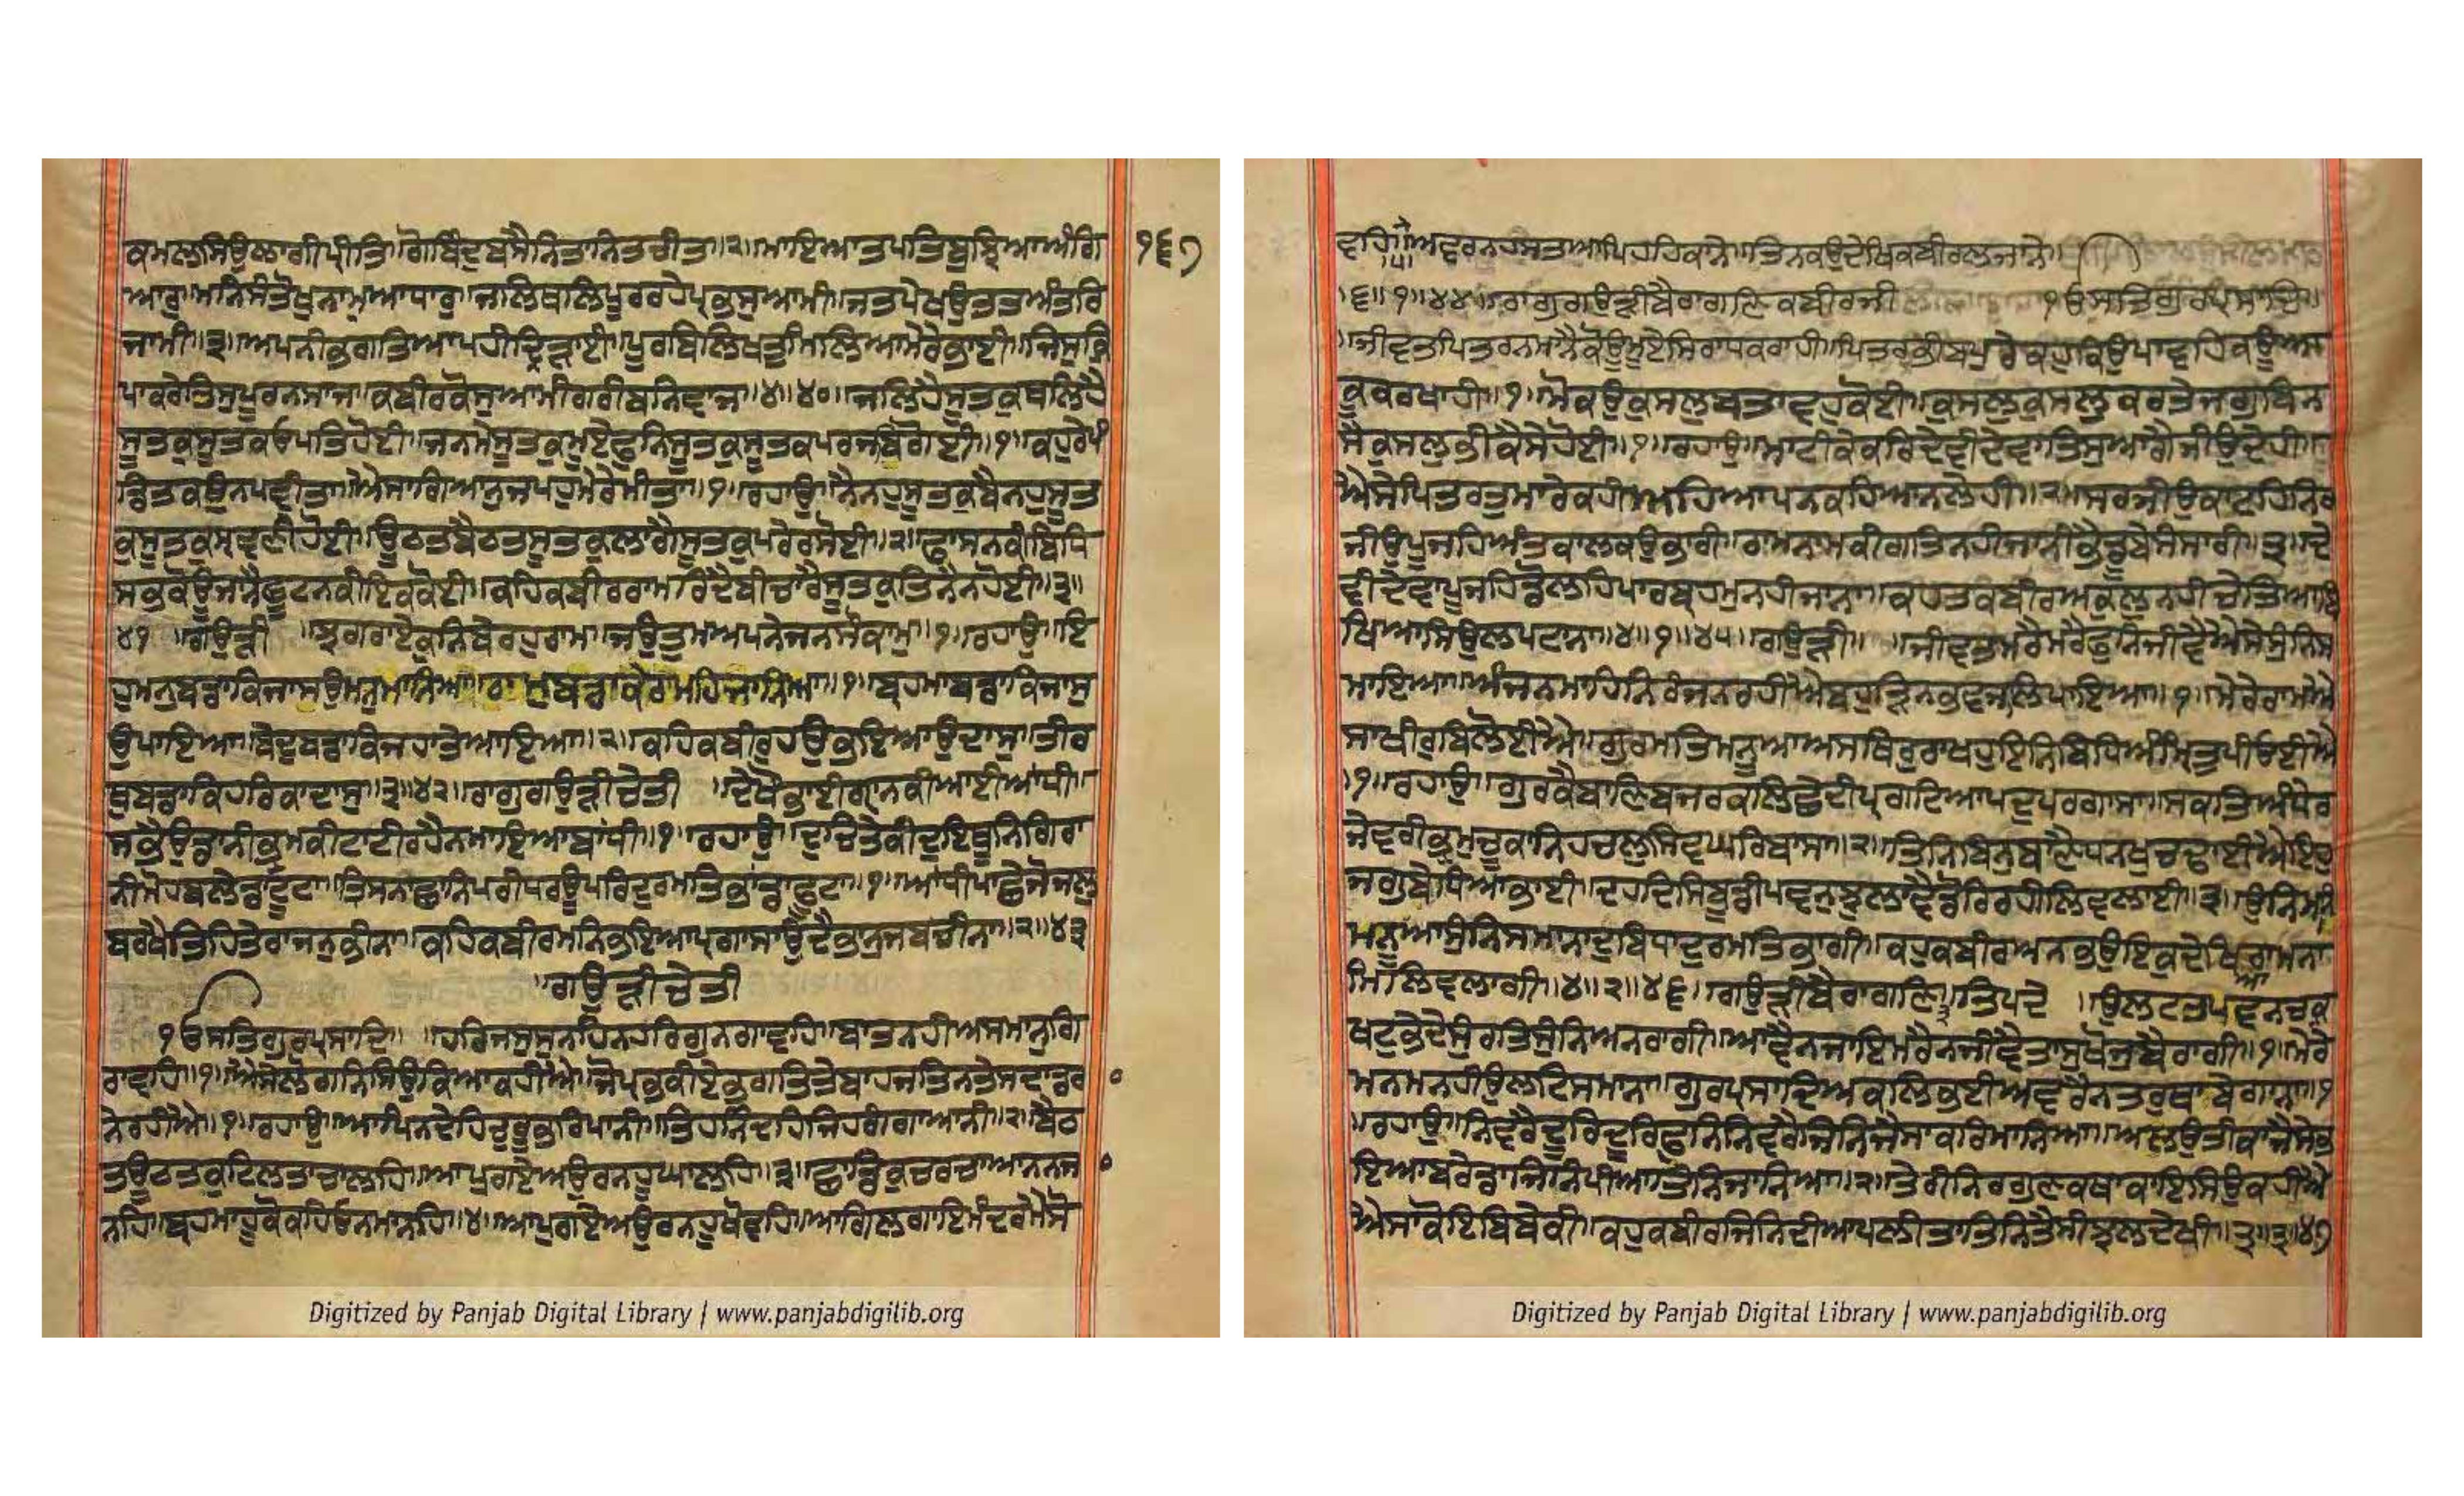 ਕਮਲਸਿਉਲਾਗੀਪ੍ਰੀਤਿ॥ਗੋਬਿੰਦੁਬਸੈਨਿਤਾਨਿਤਚੀਤ॥੨॥ਮਾਇਆਤਪਤਿਬੁਝਿਆਅੰਗਿ
ਆਰੁ॥ਮਨਿਸੰਤੋਖੁਨਾਮੁਆਧਾਰੁ॥ਜਲਿਥਲਿਪੂਰਰਹੇਪ੍ਰਭਸੁਆਮੀ॥ਜਤਪੇਖਉਤਤਅੰਤਰਿ
ਜਾਮੀ॥੩॥ਅਪਨੀਭਗਤਿਆਪਹੀਦ੍ਰਿੜਾਈ॥ਪੂਰਬਿਲਿਖਤੁਮਿਲਿਆਮੇਰੇਭਾਈ॥ਜਿਸੁਕ੍ਰਿ
ਪਾਕਰੇਤਿਸੁਪੂਰਨਸਾਜ॥ਕਬੀਰਕੋਸੁਆਮੀਗਰੀਬਨਿਵਾਜ॥੪॥੪੦॥ਜਲਿਹੈਸੂਤਕੁਥਲਿਹੈ
ਸੂਤਕੁਸੂਤਕਓਪਤਿਹੋਈ॥ਜਨਮੇਸੂਤਕੁਮੂਏਫੁਨਿਸੂਤਕੁਸੂਤਕਪਰਜਬਿਗੋਈ॥੧॥ਕਹੁਰੇਪੰ
ਡਿਤਕਉਨਪਵੀਤਾ॥ਐਸਾਗਿਆਨੁਜਪਹੁਮੇਰੇਮੀਤਾ॥੧॥ਰਹਾਉ॥ਨੈਨਹੁਸੂਤਕੁਬੈਨਹੁਸੂਤ
ਕੁਸੂਤਕੁਸ੍ਰਵਣੀਹੋਈ॥ਊਠਤਬੈਠਤਸੂਤਕੁਲਾਗੈਸੂਤਕੁਪਰੈਰਸੋਈ॥੨॥ਫਾਸਨਕੀਬਿਧਿ
ਸਭੁਕੋਊਜਾਨੈਛੂਟਨਕੀਇਕਕੋਈ॥ਕਹਿਕਬੀਰਰਾਮਰਿਦੈਬੀਚਾਰੈਸੂਤਕੁਤਿਨੈਨਹੋਈ॥੩॥
੪੧ ॥ਗਉੜੀ ॥ਝਗਰਾਏਕੁਨਿਬੇਰਹੁਰਾਮ॥ਜਉਤੁਮਅਪਨੇਜਨਸੌਕਾਮੁ॥੧॥ਰਹਾਉ॥ਇ
ਹੁਮਨੁਬਡਾਕਿਜਾਸਉਮਨੁਮਾਨਿਆ॥ਰਾਮੁਬਡਾਕੈਰਾਮਹਿਜਾਨਿਆ॥੧॥ਬ੍ਰਹਮਾਬਡਾਕਿਜਾਸੁ
ਉਪਾਇਆ॥ਬੇਦੁਬਡਾਕਿਜਹਾਤੇਆਇਆ॥੨॥ਕਹਿਕਬੀਰੁਹਉਭਇਆਉਦਾਸੁ॥ਤੀਰ
ਥੁਬਡਾਕਿਹਰਿਕਾਦਾਸੁ॥੩॥੪੨॥ਰਾਗੁਗਉੜੀਚੇਤੀ ॥ਦੇਖੌਭਾਈਗ੍ਯਾਨਕੀਆਈਆਂਧੀ॥
ਸਭੈਉਡਾਨੀਭ੍ਰਮਕੀਟਾਟੀਰਹੈਨਮਾਇਆਬਾਂਧੀ॥੧॥ਰਹਾਉ॥ਦੁਚਿਤੇਕੀਦੁਇਥੂਨਿਗਿਰਾ
ਨੀਮੋਹਬਲੇਡਾਟੂਟਾ॥ਤਿਸਨਾਛਾਨਿਪਰੀਧਰਊਪਰਿਦੁਰਮਤਿਭਾਂਡਾਫੂਟਾ॥੧॥ਆਂਧੀਪਾਛੇਜੋਜਲੁ
ਬਰਖੈਤਿਹਿਤੇਰਾਜਨੁਭੀਨਾ॥ਕਹਿਕਬੀਰਮਨਿਭਇਆਪ੍ਰਗਾਸਾਉਦੈਭਾਨੁਜਬਚੀਨਾ॥੨॥੪੩
॥ਗਉੜੀਚੇਤੀ
੧ਓਸਤਿਗੁਰਪ੍ਰਸਾਦਿ॥ ॥ਹਰਿਜਸੁਸੁਨਹਿਨਹਰਿਗੁਨਗਾਵਹਿ॥ਬਾਤਨਹੀਅਸਮਾਨੁਗਿ
ਰਾਵਹਿ॥੧॥ਐਸੇਲੋਗਨਿਸਿਉਕਿਆਕਹੀਐ॥ਜੋਪ੍ਰਭਕੀਏਭਗਤਿਤੇਬਾਹਜਤਿਨਤੇਸਦਾਡਰ
ਨੇਰਹੀਐ॥੧॥ਰਹਾਉ॥ਆਪਿਨਦੇਹਿਚੁਰੂਭਰਿਪਾਨੀ॥ਤਿਹਨਿੰਦਹਿਜਿਹਗੰਗਾਆਨੀ॥੨॥ਬੈਠ
ਤਊਠਤਕੁਟਿਲਤਾਚਾਲਹਿ॥ਆਪੁਗਏਅਉਰਨਹੂਘਾਲਹਿ॥੩॥ਛਾਡਿਕੁਚਰਚਾਆਨਨਜ
ਨਹਿ॥ਬ੍ਰਹਮਾਹੂਕੋਕਹਿਓਨਮਾਨਹਿ॥੪॥ਆਪੁਗਏਅਉਰਨਹੂਖੋਵਹਿ॥ਆਗਿਲਗਾਇਮੰਦਰਮੈਸੋ
੧੬੭
ਵਹਿ॥੫॥ਅਵਰਨਹਸਤਆਪਿਹਹਿਕਾਨੇ॥ਤਿਨਕਉਦੇਖਿਕਬੀਰਲਜਾਨੇ॥
॥੬॥੧॥੪੪॥ਰਾਗੁਗਉੜੀਬੈਰਾਗਣਿਕਬੀਰਜੀ ੧ਓਸਤਿਗੁਰਪ੍ਰਸਾਦਿ॥
॥ਜੀਵਤਪਿਤਰਨਮਾਨੈਕੋਊਮੂਏਸਿਰਾਧਕਰਾਹੀ॥ਪਿਤਰਭੀਬਪੁਰੇਕਹੁਕਿਉਪਾਵਹਿਕਊਆ
ਕੂਕਰਖਾਹੀ॥੧॥ਮੋਕਉਕੁਸਲੁਬਤਾਵਹੁਕੋਈ॥ਕੁਸਲੁਕੁਸਲੁਕਰਤੇਜਗੁਬਿਨ
ਸੈਕੁਸਲੁਭੀਕੈਸੇਹੋਈ॥੧॥ਰਹਾਉ॥ਮਾਟੀਕੇਕਰਿਦੇਵੀਦੇਵਾਤਿਸੁਆਗੈਜੀਉਦੇਹੀ॥
ਐਸੇਪਿਤਰਤੁਮਾਰੇਕਹੀਅਹਿਆਪਨਕਹਿਆਨਲੇਹੀ॥੨॥ਸਰਜੀਉਕਾਟਹਿਨਿਰ
ਜੀਉਪੂਜਹਿਅੰਤਕਾਲਕਉਭਾਰੀ॥ਰਾਮਨਾਮਕੀਗਤਿਨਹੀਜਾਨੀਭੈਡੂਬੇਸੰਸਾਰੀ॥੩॥ਦੇ
ਵੀਦੇਵਾਪੂਜਹਿਡੋਲਹਿਪਾਰਬ੍ਰਹਮੁਨਹੀਜਾਨਾ॥ਕਹਤਕਬੀਰਅਕੁਲੁਨਹੀਚੇਤਿਆਬਿ
ਖਿਆਸਿਉਲਪਟਾਨਾ॥੪॥੧॥੪੫॥ਗਉੜੀ॥ ॥ਜੀਵਤਮਰੈਮਰੈਫੁਨਿਜੀਵੈਐਸੇਸੁੰਨਿਸ
ਮਾਇਆ॥ਅੰਜਨਮਾਹਿਨਿਰੰਜਨਰਹੀਐਬਹੁੜਿਨਭਵਜਲਿਪਾਇਆ॥੧॥ਮੇਰੇਰਾਮਐ
ਸਾਖੀਰੁਬਿਲੋਈਐ॥ਗੁਰਮਤਿਮਨੂਆਅਸਥਿਰੁਰਾਖਹੁਇਨਿਬਿਧਿਅੰਮ੍ਰਿਤੁਪੀਓਈਐ
॥੧॥ਰਹਾਉ॥ਗੁਰਕੈਬਾਣਿਬਜਰਕਲਿਛੇਦੀਪ੍ਰਗਟਿਆਪਦੁਪਰਗਾਸਾ॥ਸਕਤਿਅੰਧੇਰ
ਜੇਵਰੀਭ੍ਰਮੁਚੂਕਾਨਿਹਚਲੁਸਿਵਘਰਿਬਾਸਾ॥੨॥ਤਿਨਿਬਿਨੁਬਾਣੈਧਨਖੁਚਢਾਈਐਇਹੁ
ਜਗੁਬੇਧਿਆਭਾਈ॥ਦਹਦਿਸਿਬੂਡੀਪਵਨੁਝੁਲਾਵੈਡੋਰਿਰਹੀਲਿਵਲਾਈ॥੩॥ਉਨਿਮਨਿ
ਮਨੂਆਸੁੰਨਿਸਮਾਨਾਦੁਬਿਧਾਦੁਰਮਤਿਭਾਗੀ॥ਕਹੁਕਬੀਰਅਨਭਉਇਕੁਦੇਖਿਆਰਾਮਨਾ
ਮਿਲਿਵਲਾਗੀ॥੪॥੨॥੪੬॥ਗਉੜੀਬੈਰਾਗਣਿ੩ਤਿਪਦੇ ॥ਉਲਟਤਪਵਨਚਕ੍ਰ
ਖਟੁਭੇਦੇਸੁਰਤਿਸੁੰਨਿਅਨਰਾਗੀ॥ਆਵੈਨਜਾਇਮਰੈਨਜੀਵੈਤਾਸੁਖੋਜੁਬੈਰਾਗੀ॥੧॥ਮੇਰੇ
ਮਨਮਨਹੀਉਲਟਿਸਮਾਨਾ॥ਗੁਰਪ੍ਰਸਾਦਿਅਕਲਿਭਈਅਵਰੈਨਤਰੁਥਾਬੇਗਾਨਾ॥੧
॥ਰਹਾਉ॥ਨਿਵਰੈਦੂਰਿਦੂਰਿਫੁਨਿਨਿਵਰੈਜਿਨਿਜੈਸਾਕਰਿਮਾਨਿਆ॥ਅਲਉਤੀਕਾਜੈਸੇਭ
ਇਆਬਰੇਡਾਜਿਨਿਪੀਆਤਿਨਿਜਾਨਿਆ॥੨॥ਤੇਰੀਨਿਰਗੁਣਕਥਾਕਾਇਸਿਉਕਹੀਐ
ਐਸਾਕੋਇਬਿਬੇਕੀ॥ਕਹੁਕਬੀਰਜਿਨਿਦੀਆਪਲੀਤਾਤਿਨਿਤੈਸੀਝਲਦੇਖੀ॥੩॥੩॥੪੭
Digitized by Panjab Digital Library | www.panjabdigilib.org
Digitized by Panjab Digital Library | www.panjabdigilib.org